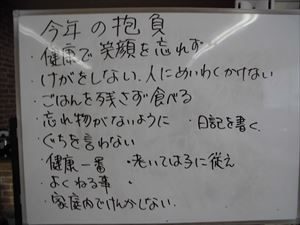 今年の抱負
・健康で笑顔を忘れず
けがをしない、人にめいわくかけない
・ごはんを残さず食べる
・忘れ物がないように ・日記を書く
ぐちを言わない
・健康一番 ・老いては子に従え
・よくねる事 ・
・家庭内でけんかしない。